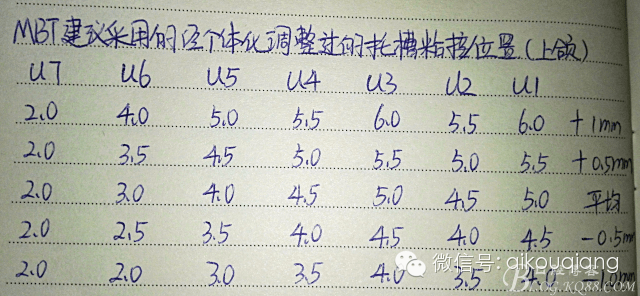 MBT建议采用的经个体化调整过的托槽粘接位置(上颌)
U7 U6 U5 U4 U3 U2 U1
2.0 4.0 5.0 5.5 6.0 5.5 6.0 +1mm
2.0 3.5 4.5 5.0 5.5 5.0 5.5 +0.5mm
2.0 3.0 4.0 4.5 5.0 4.5 5.0 平均
2.0 2.5 3.5 4.0 4.5 4.0 4.5 -0.5mm
微信号: qikouqiang
2.0 2.0 3.0 3.5 4.0 3.5
BLOG.KQ88.COM